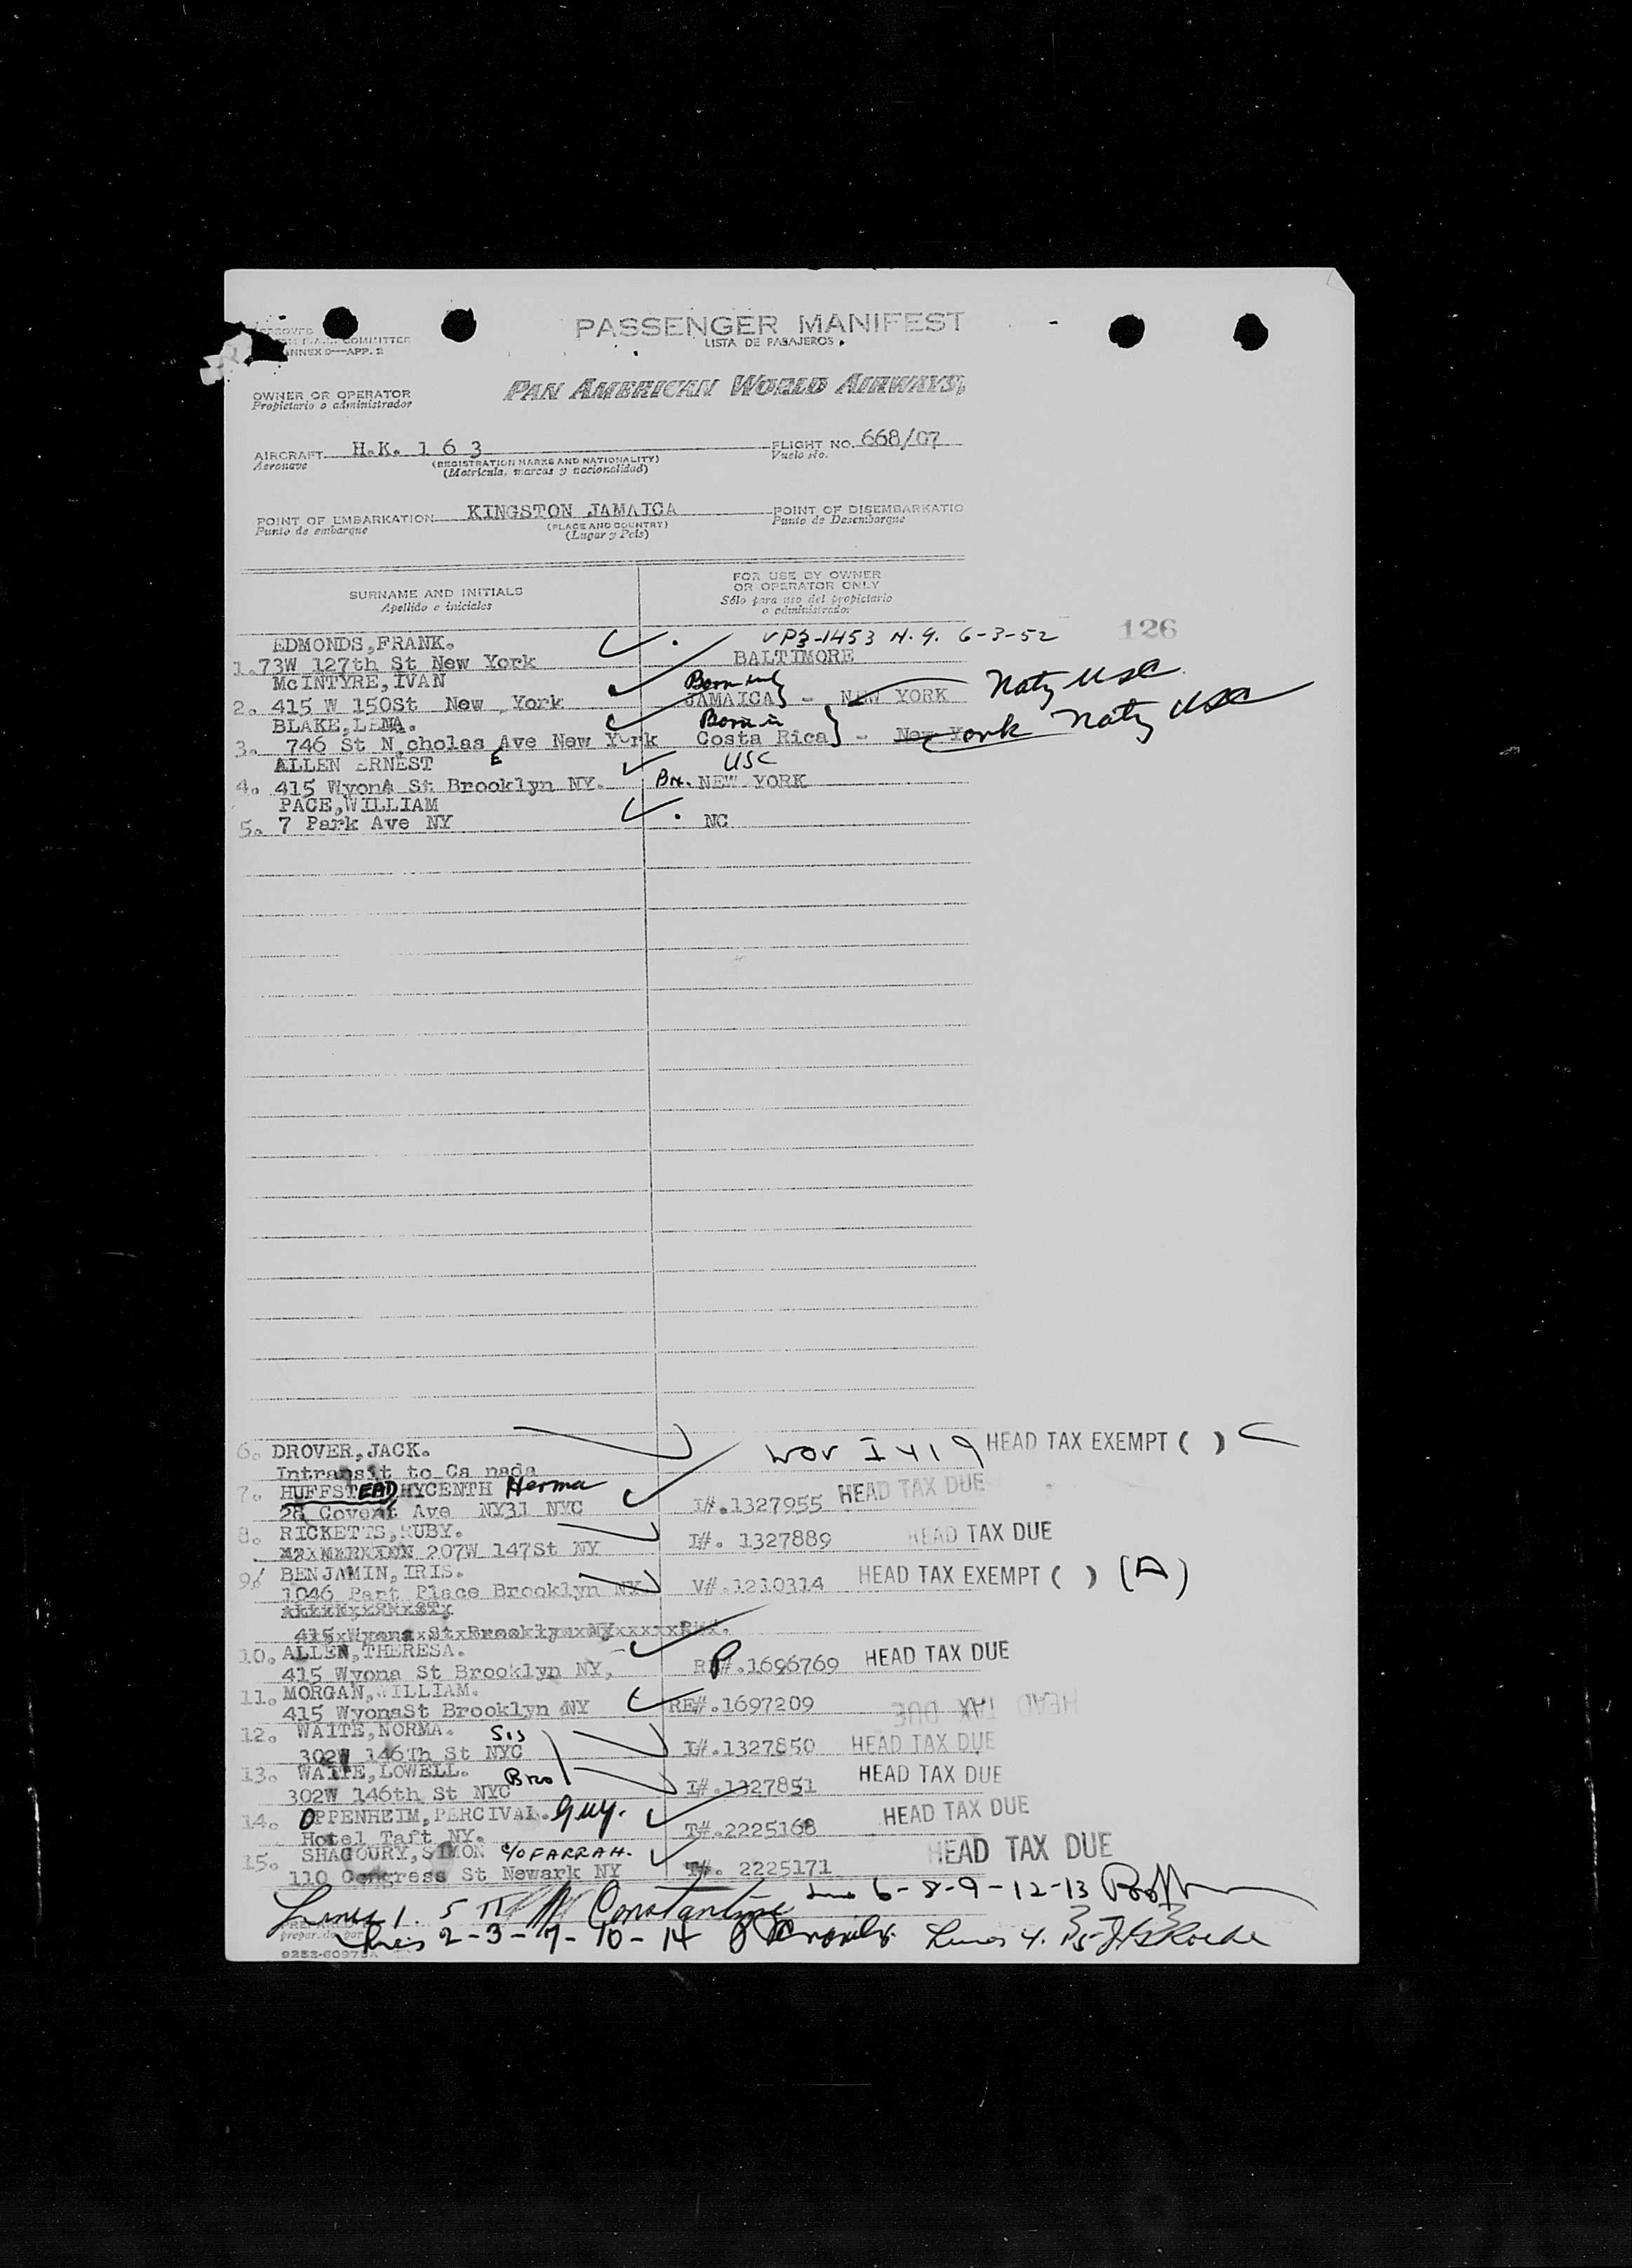 PASSENGER MANIFEST
LISTA DE PASAJEROS
APPROVED
COMMITTEE
ANNEX D—APP. 2
PAN AMERICAN WORLD AIRWAYS,
OWNER OR OPERATOR
Propietario o administrador
AIRCRAFT H.K. 1 6 3 FLIGHT NO. 668/07
Aeronave (REGISTRATION MARKS AND NATIONALITY) Vuelo No.
(Matricula, marcas y nacionalidad)
POINT OF EMBARKATION KINGSTON JAMAICA POINT OF DISEMBARKATIO
Punto de embarque (PLACE AND COUNTRY) Punto de Desembarque
(Lugar y País)
SURNAME AND INITIALS FOR USE BY OWNER OR OPERATOR ONLY
Apellido e iniciales Sólo para uso del propietario o administrador
126
EDMONDS,FRANK. VP3-1453 N.Y. 6-3-52
1. 73W 127th St New York BALTIMORE
McINTYRE,IVAN Born in
2. 415 W 150St New York JAMAICA} - NEW YORK Natz USC
BLAKE,LENA. Born in
3. 746 St N cholas Ave New York Costa Rica} - New York Natz USC
ALLEN ERNEST E USC
4. 415 Wyona St Brooklyn NY. Bn. NEW YORK
PACE,WILLIAM
5. 7 Park Ave NY NC
6. DROVER,JACK. WOV I 419 HEAD TAX EXEMPT ( ) C
Intransit to Ca nada
7. HUFFSTEAD,HYCENTH Herma
28 Covent Ave NY31 NYC I#.1327955 HEAD TAX DUE
8. RICKETTS,RUBY.
207W 147St NY I#. 1327889 HEAD TAX DUE
9. BENJAMIN,IRIS.
1046 Part Place Brooklyn NY V#.1210314 HEAD TAX EXEMPT ( ) (A)
415xWyona xStxBrooklynxNYxxxxx
10. ALLEN,THERESA.
415 Wyona St Brooklyn NY, RP#.1696769 HEAD TAX DUE
11. MORGAN,WILLIAM.
415 WyonaSt Brooklyn NY RE#.1697209 HEAD TAX DUE
12. WAITE,NORMA. Sis
302W 146Th St NYC I#.1327850 HEAD TAX DUE
13. WAITE,LOWELL. Bro
302W 146th St NYC I#.1327851 HEAD TAX DUE
14. OPPENHEIM,PERCIVAL. Guy.
Hotel Taft NY. T#.2225168 HEAD TAX DUE
15. SHAGOURY,SIMON c/o FARRAH.
110 Congress St Newark NY T#. 2225171 HEAD TAX DUE
Lines 1. 5 11 Constantine Lines 6-8-9-12-13
Lines 2-3-7-10-14 Lines 4. 15
preparado por